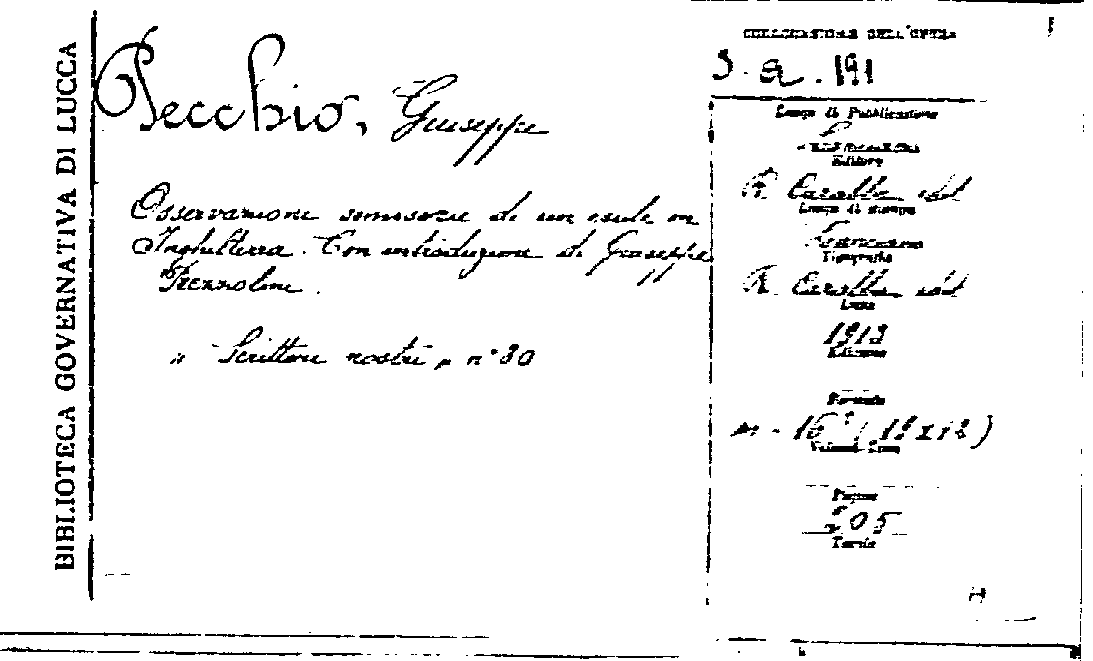 BIBLIOTECA GOVERNATIVA DI LUCCA
Pecchio, Giuseppe
Osservazioni semiserie di un esule in
Inghilterra. Con introduzione di Giuseppe
Prezzolini.
"Scrittori nostri" n° 30
COLLOCAZIONE DELL'OPERA
3. a. 191
Luogo di Pubblicazione
Lanciano
Editore
R. Carabba edit
Luogo di stampa
Lanciano
Tipografia
R. Carabba edit
Data
1913
Edizione
Formato
in - 16° (19x12)
Volumi
Pagine
205
Tavole